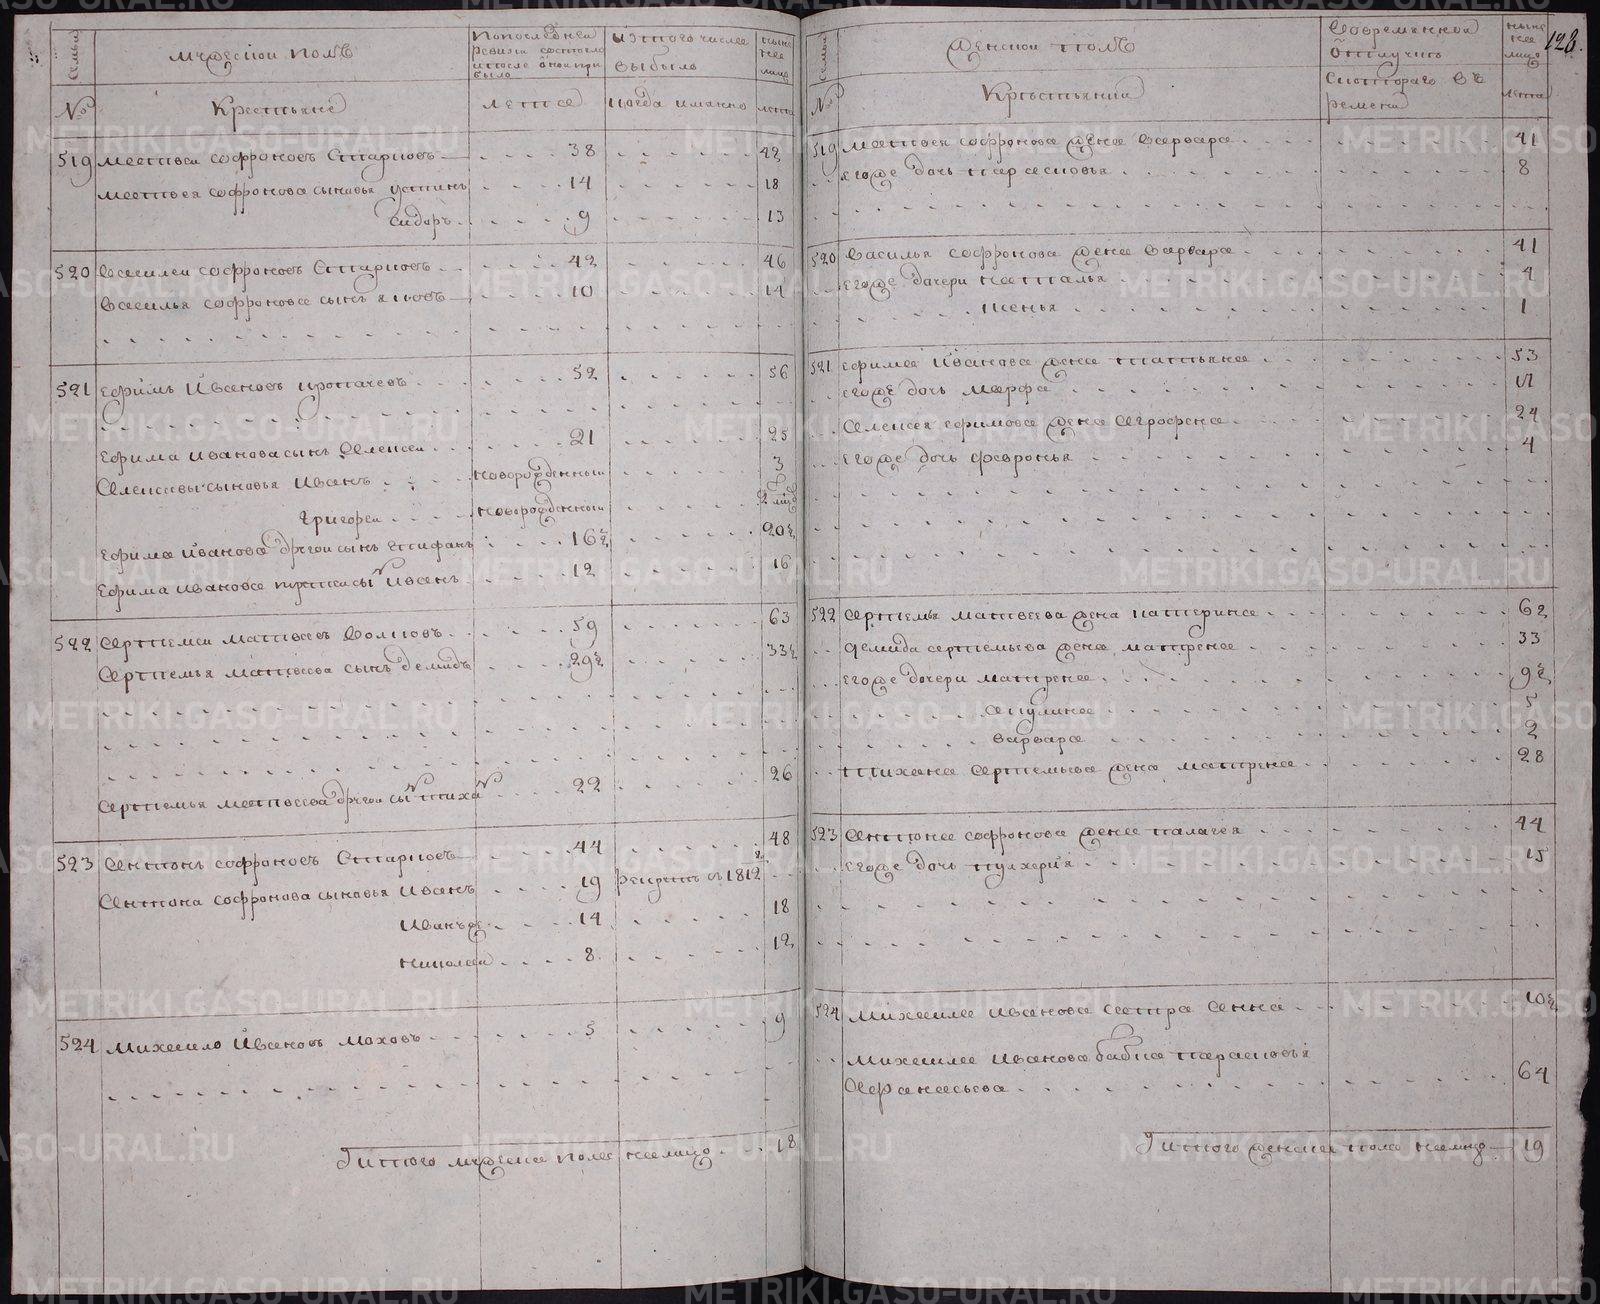 Семьи
Мужескои полъ
По последней ревизии состояло и после оной прибыло
Из того числа выбыло
Ныне на лицо
№
Крестьяне
лета
когда имянно
лета
519 Матвеи Софроновъ Старковъ 38 42
Матвея Софронова сыновья Устинъ 14 18
Сидоръ 9 13
520 Василеи Софроновъ Старковъ 42 46
Василья Софронова сынъ Яковъ 10 14
521 Ефимъ Ивановъ 52 56
Ефима Иванова сынъ Алексеи 21 25
Алексеевы сыновья Иванъ новорожденныи 3
Григореи новорожденныи
Ефима Иванова другои сынъ Епифанъ 16½ 20½
Ефима Иванова третеи сынъ Иванъ 12 16
522 Артемеи Матвеевъ Волковъ 59 63
Артемья Матвеева сынъ Демидъ 29½ 33½
Артемья Матвеева другои сынъ Тиханъ 22 26
523 Антонъ Софроновъ Старковъ 44 48
Антона Софронова сыновья Иванъ 19 рекрутъ въ 1812
Иванъ же 14 18
Николаи 8 12
524 Михаило Ивановъ Моховъ 5 9
Итого мужеска пола налицо 18
128.
Семьи
Женскои полъ
Во временной отлучке
Ныне на лицо
№
Крестьянки
С котораго времени
лета
519 Матвея Софронова жена Варвара 41
Его же дочь Парасковья 8
520 Василья Софронова жена Варвара 41
Его же дочери Наталья 4
Ксенья 1
521 Ефима Иванова жена Татьяна 53
Его же дочь Марфа
Алексея Ефимова жена Аграфена 24
Его же дочь Февронья 4
522 Артемья Матвеева жена Катерина 62
Демида Артемьева жена Матрена 33
Его же дочери Матрена 9½
Акулина 5
Варвара 2
Тихана Артемьева жена Матрена 28
523 Антона Софронова жена Палагея 44
Его же дочь Пулхерия 15
524 Михаила Иванова сестра Анна 10½
Михаила Иванова бабка Парасковья
Афанасьева 64
Итого женска пола налицо 19
METRIKI.GASO-URAL.RU